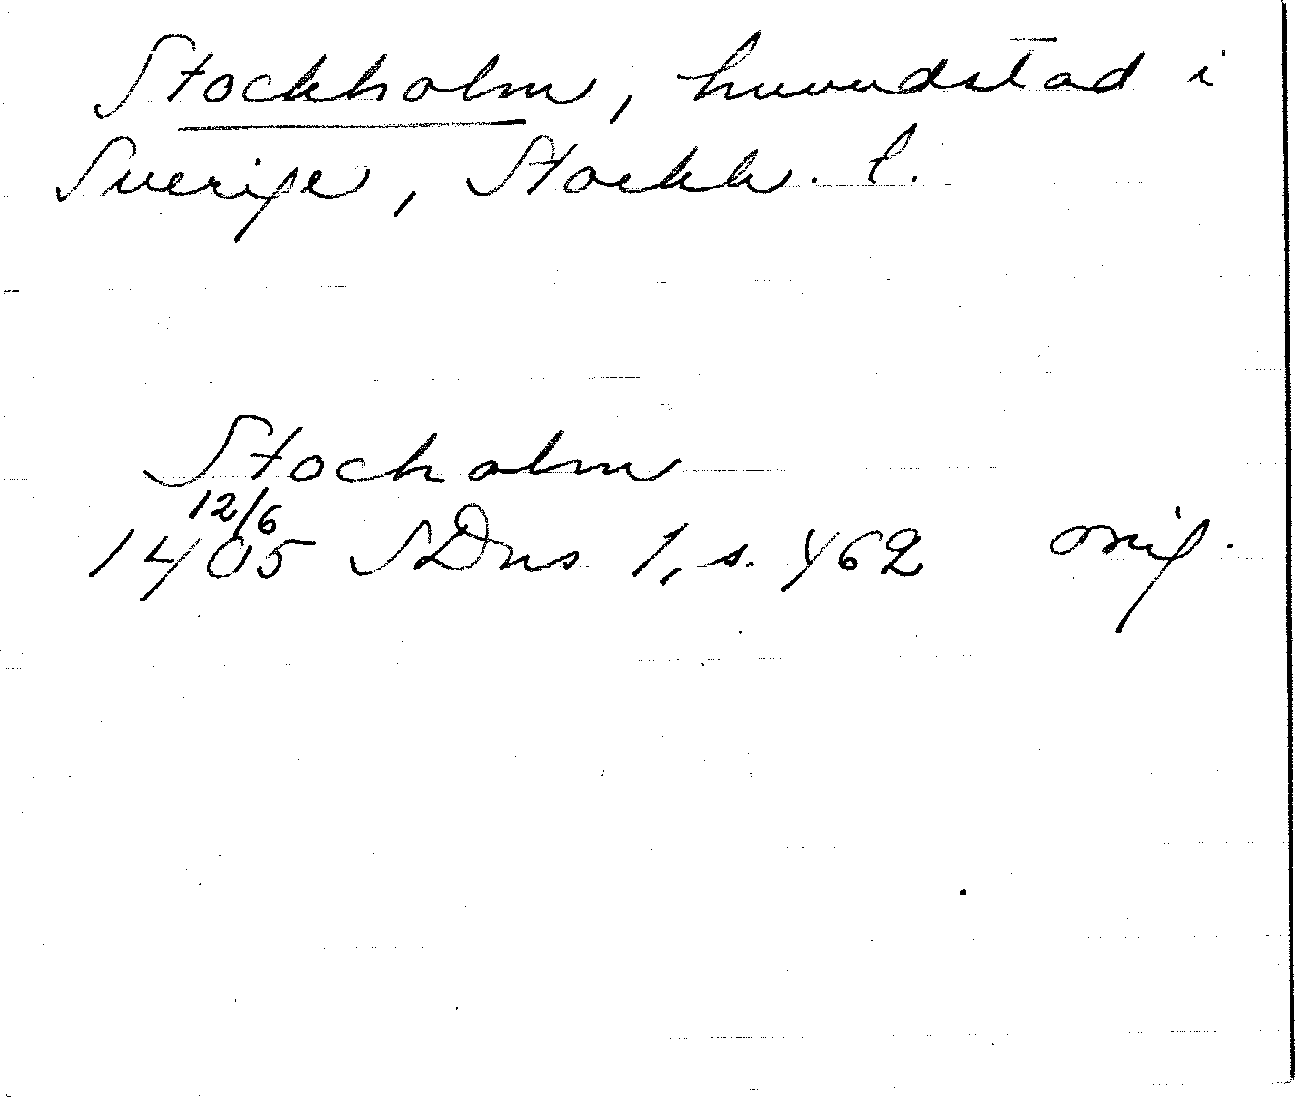 Stockholm, huvudstad i
Sverige, Stockh. l.
Stocholm
12/6
1405 SDns 1, s. 462 orig.